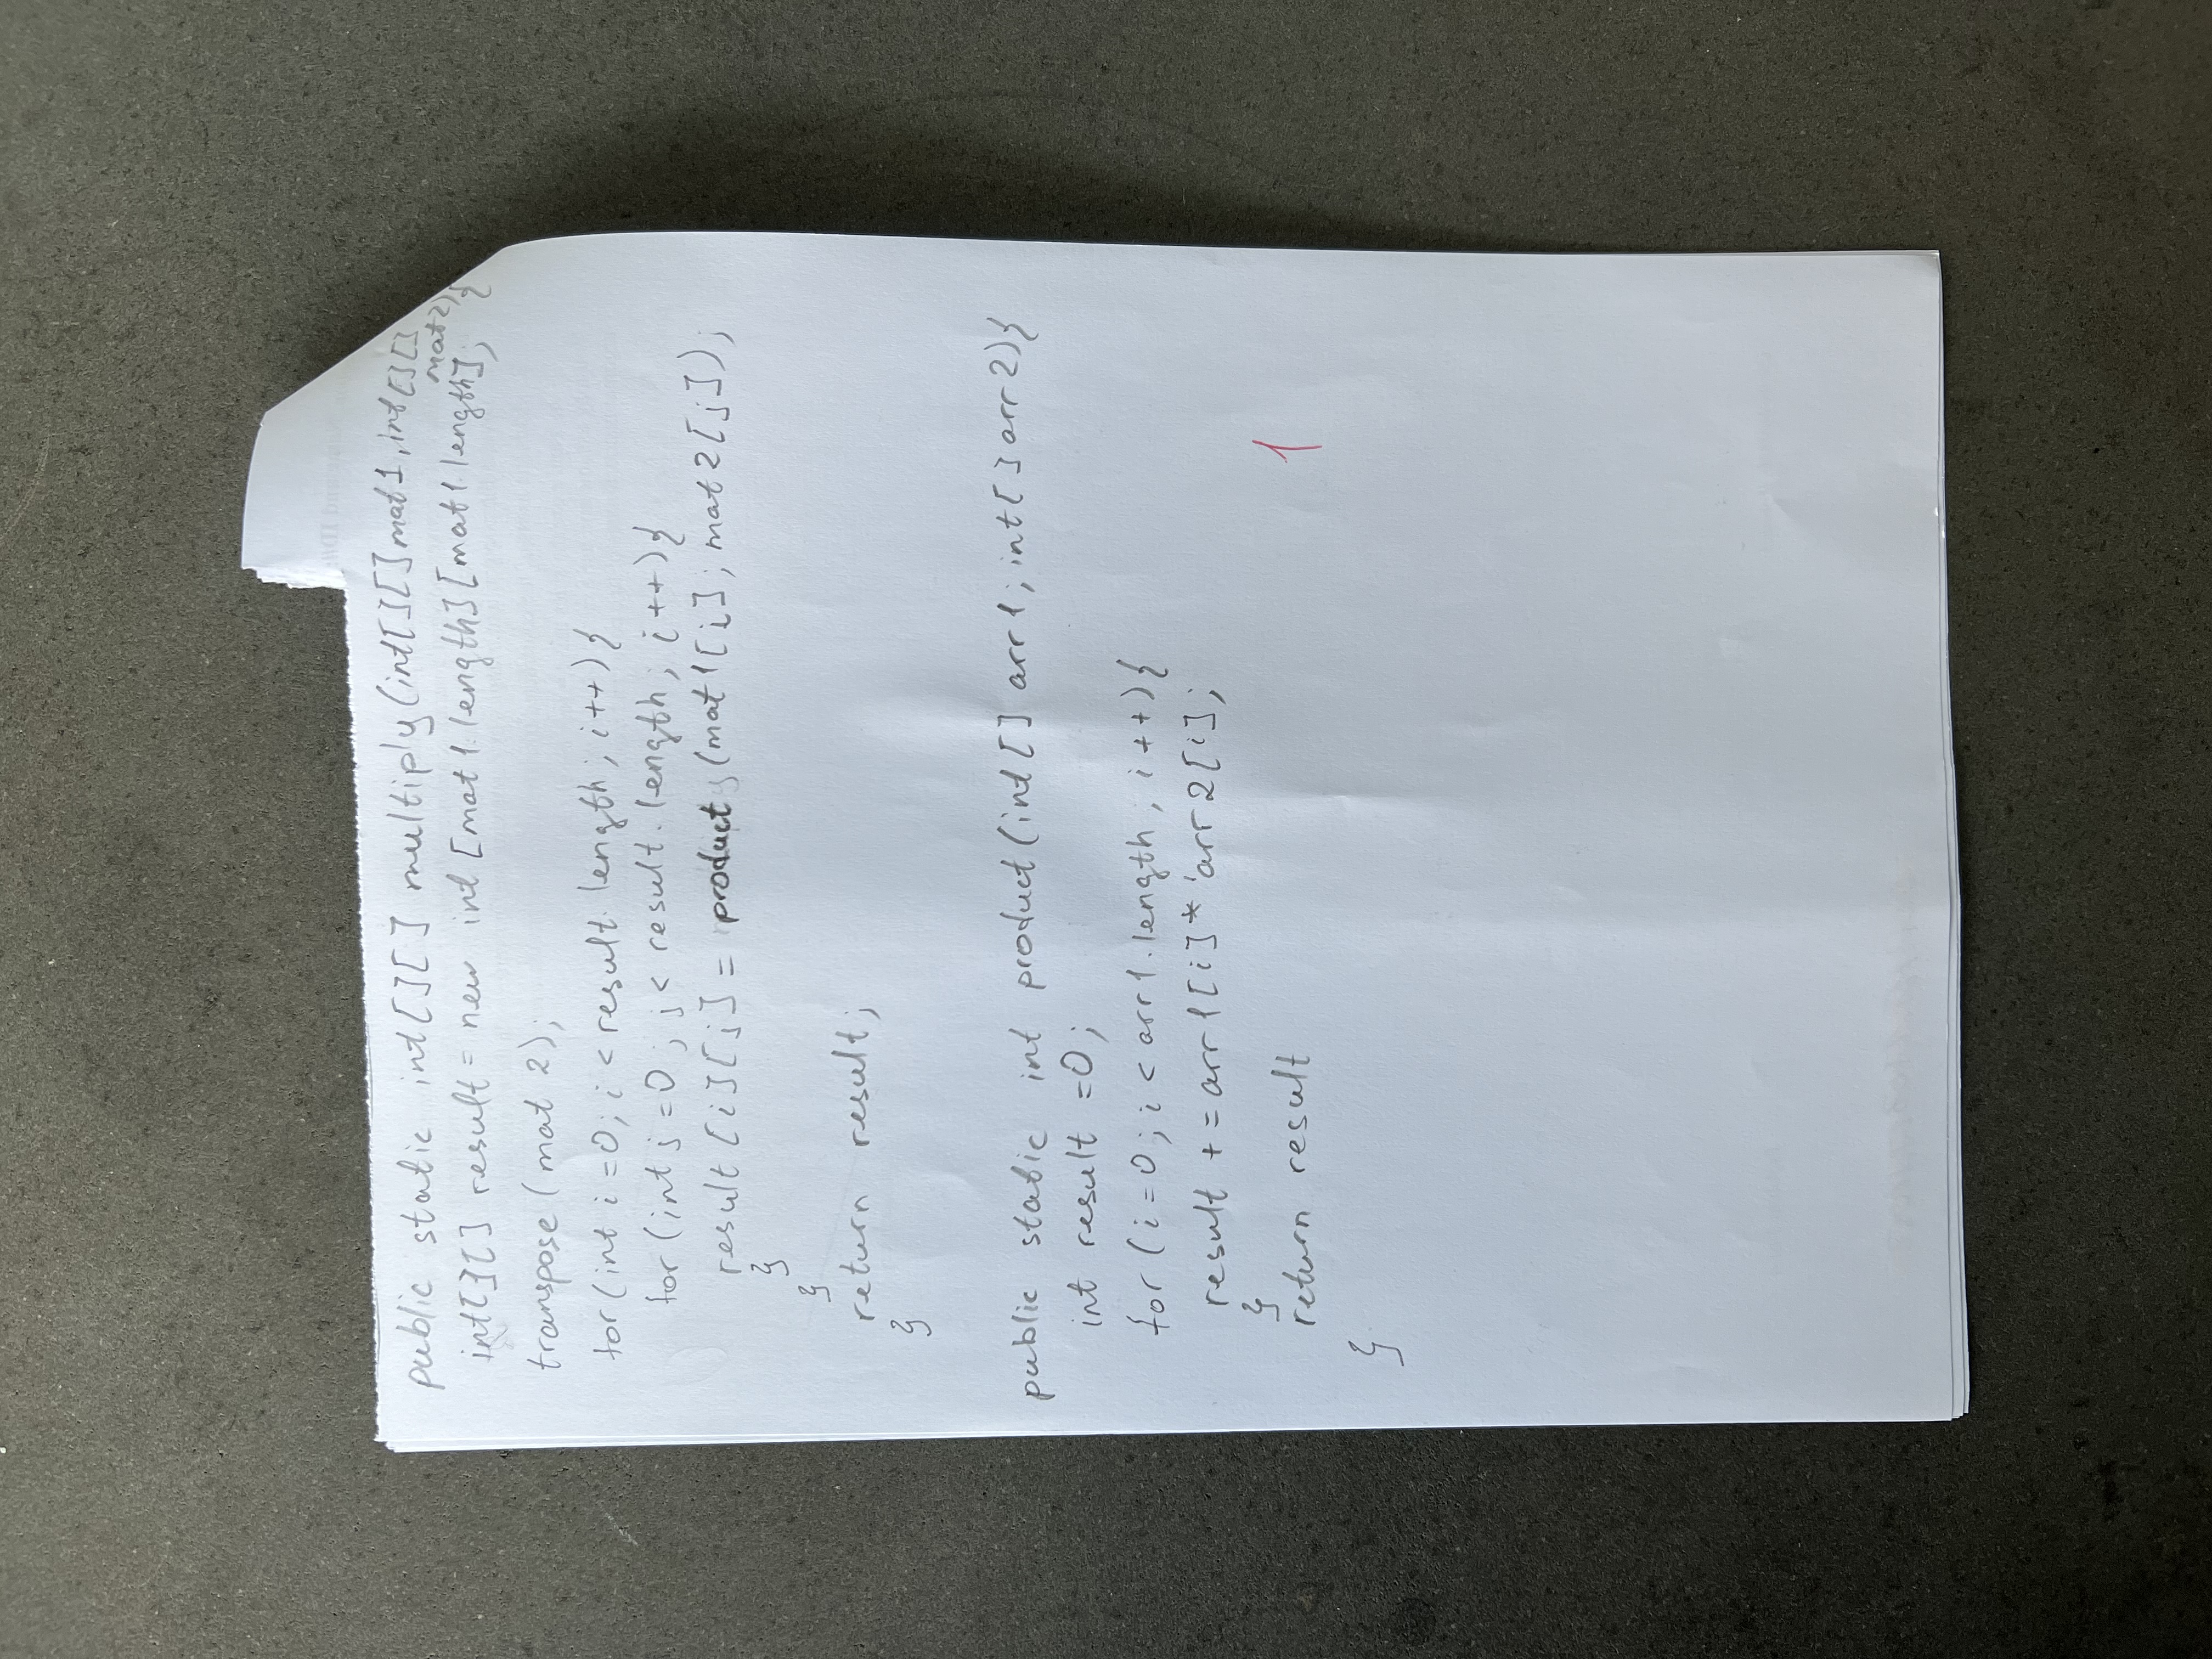 public static int[][] multiply(int[][] mat1, int[][] mat2){
int[][] result = new int [mat1.length][mat1.length];
transpose (mat 2);
for (int i = 0; i < result.length; i++){
for (int j = 0; j < result.length; j++){
result [i][j] = product (mat1[i]; mat2[j]);
}
}
return result;
}
public static int product (int[] arr1; int[] arr2){
int result = 0;
for (i = 0; i < arr1.length; i++){
result += arr1[i] * arr2[i];
}
return result
}
1